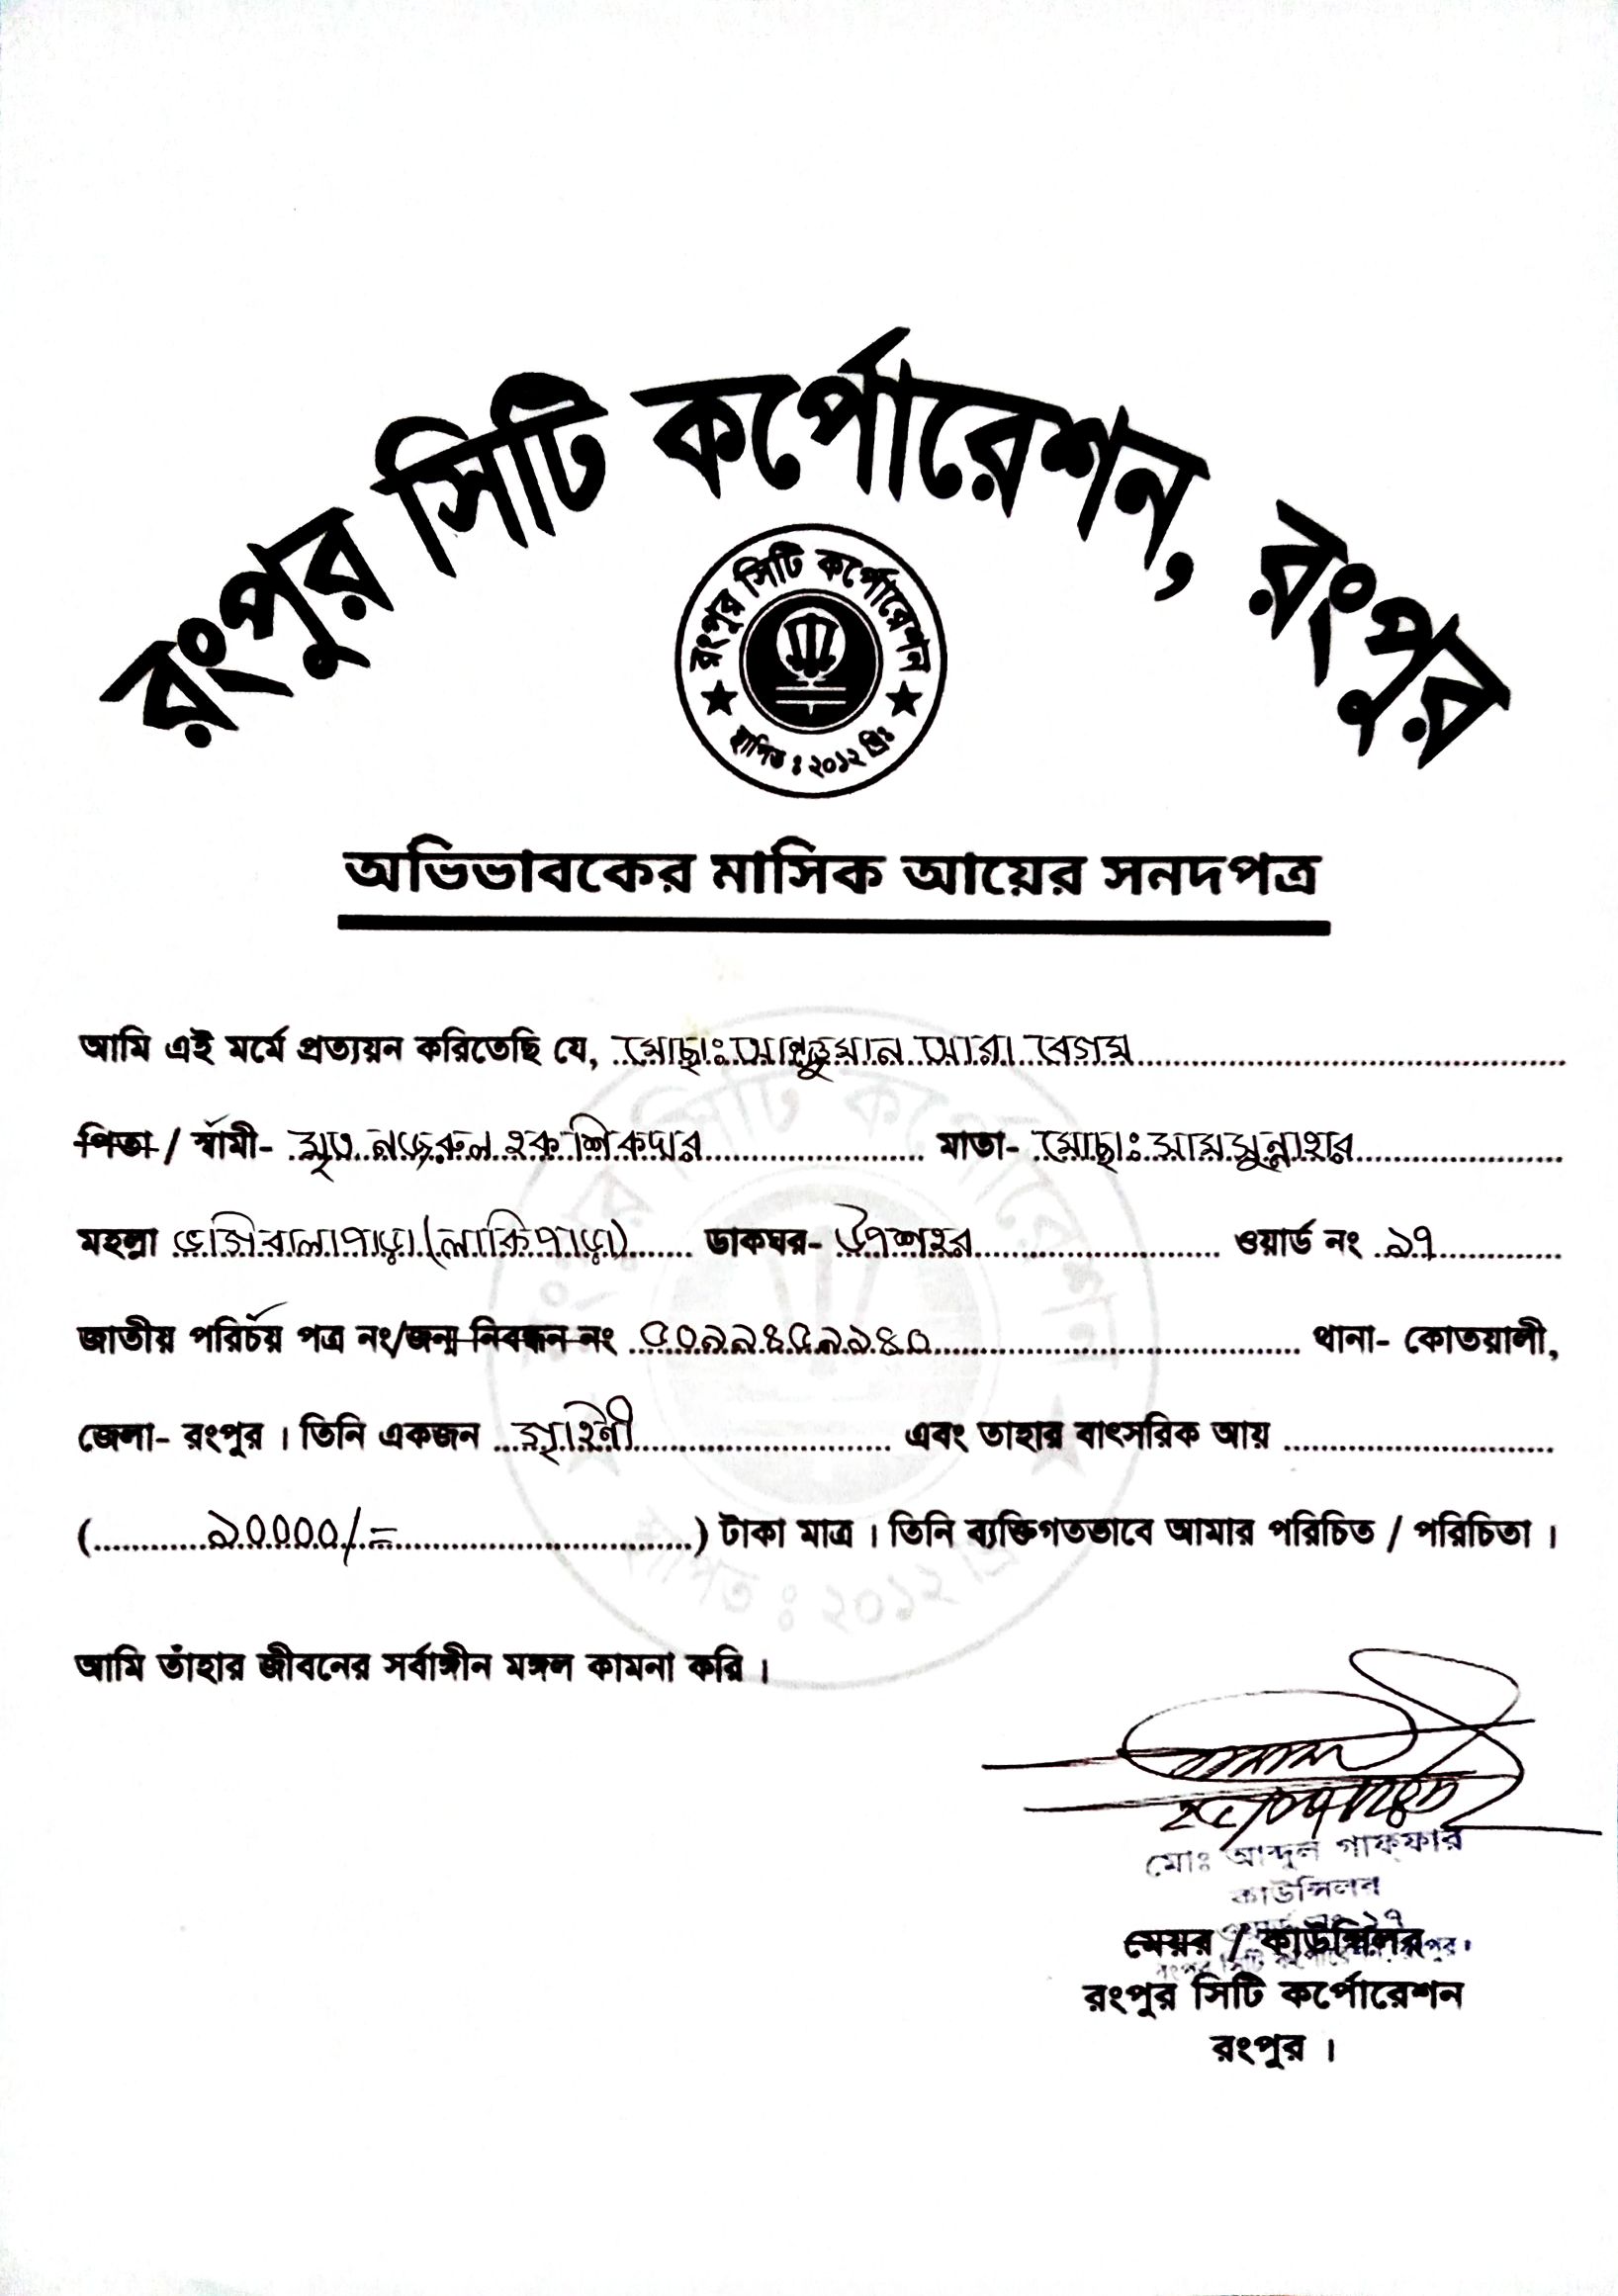 রংপুর সিটি কর্পোরেশন, রংপুর
রংপুর সিটি কর্পোরেশন
স্থাপিত : ২০১২ খ্রিঃ
অভিভাবকের মাসিক আয়ের সনদপত্র
আমি এই মর্মে প্রত্যয়ন করিতেছি যে, মোছাঃ আঞ্জুমান আরা বেগম
পিতা / স্বামী- মৃত নজরুল হক শিকদার মাতা- মোছাঃ সামসুন্নাহার
মহল্লা (লাকিপাড়া) ডাকঘর- উপশহর ওয়ার্ড নং ১৭
জাতীয় পরিচয় পত্র নং/জন্ম নিবন্ধন নং থানা- কোতয়ালী,
জেলা- রংপুর । তিনি একজন গৃহিণী এবং তাহার বাৎসরিক আয়
(৯০০০০/=) টাকা মাত্র । তিনি ব্যক্তিগতভাবে আমার পরিচিত / পরিচিতা ।
আমি তাঁহার জীবনের সর্বাঙ্গীন মঙ্গল কামনা করি ।
মোঃ আব্দুল গাফ্ফার
কাউন্সিলর
ওয়ার্ড নং ১৭
রংপুর সিটি কর্পোরেশন, রংপুর।
মেয়র / কাউন্সিলর
রংপুর সিটি কর্পোরেশন
রংপুর ।